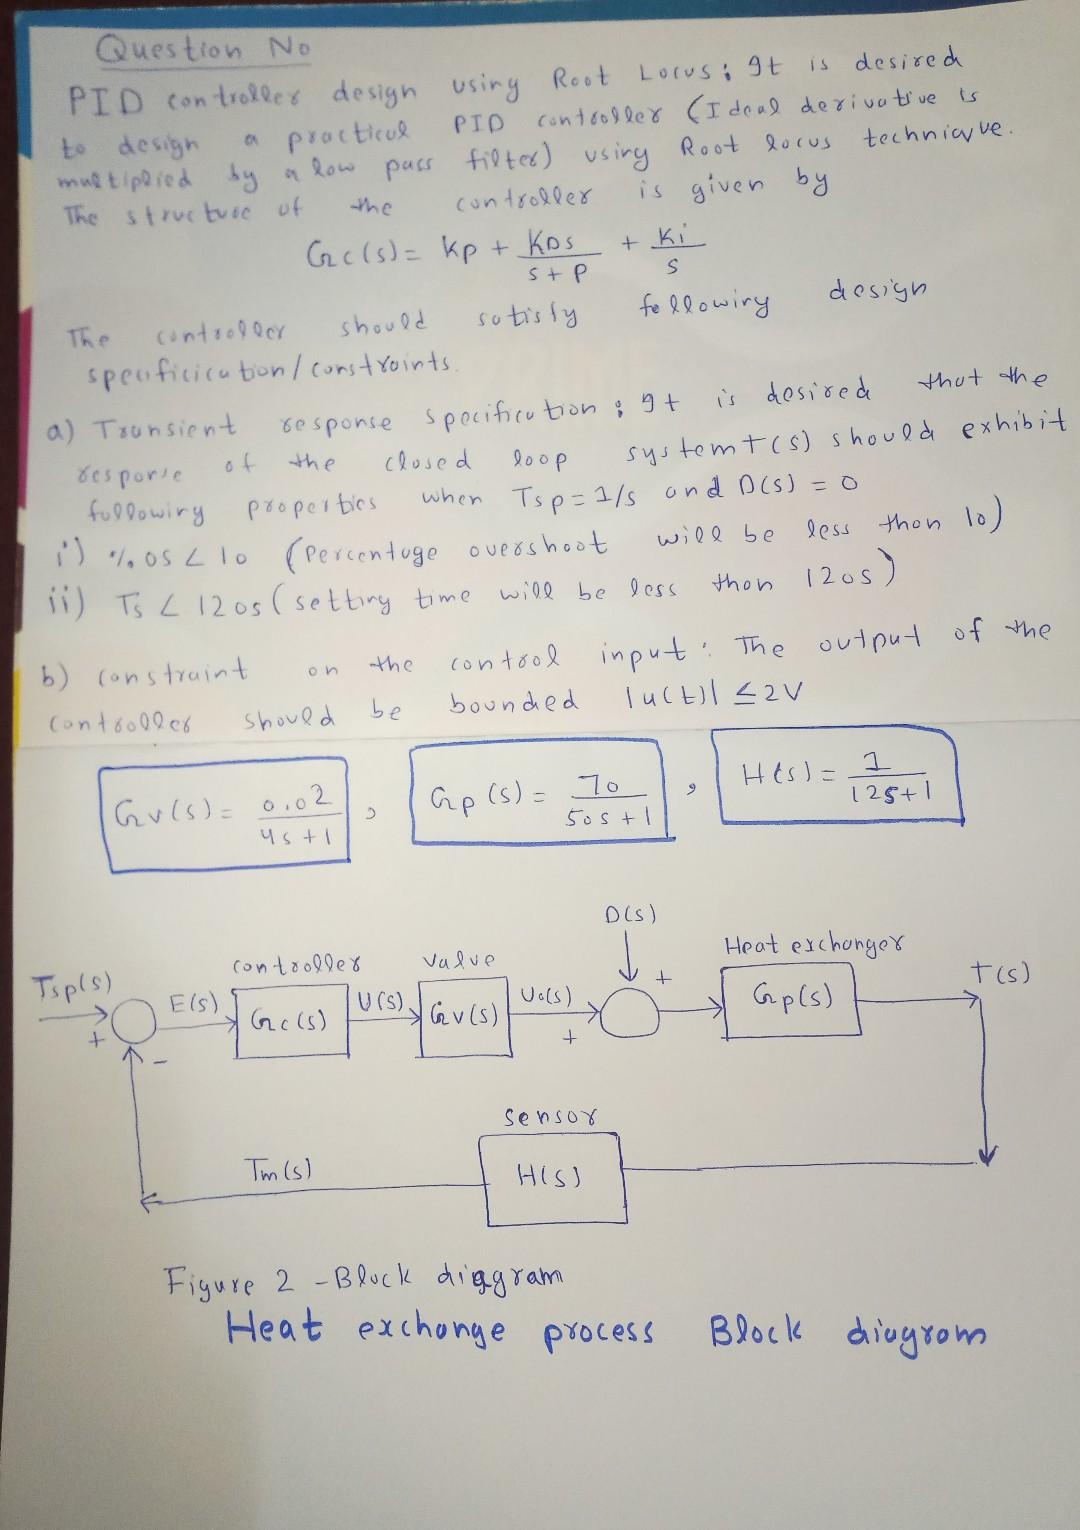 Question No
PID controller design using Root Locus; It is desired
to design a practical PID controller (Ideal derivative is
multiplied by a low pass filter) using Root locus technique.
The structure of the controller is given by
Gc(s) = Kp + KDs/(s+P) + Ki/s
The controller should satisfy following design
specificication/constraints.
a) Transient response specification; It is desired that the
response of the closed loop system T(s) should exhibit
following properties when Tsp = 1/s and D(s) = 0
i) % OS < 10 (Percentage overshoot will be less than 10)
ii) Ts < 120s (setting time will be less than 120s)
b) constraint on the control input: The output of the
controller should be bounded |u(t)| ≤ 2V
Gv(s) = 0.02/(4s+1) , Gp(s) = 70/(50s+1) , H(s) = 1/(12s+1)
D(s)
controller valve Heat exchanger
Tsp(s) E(s) Gc(s) U(s) Gv(s) Uo(s) Gp(s) T(s)
+ - + +
sensor
Tm(s) H(s)
Figure 2 - Block diagram
Heat exchange process Block diagram